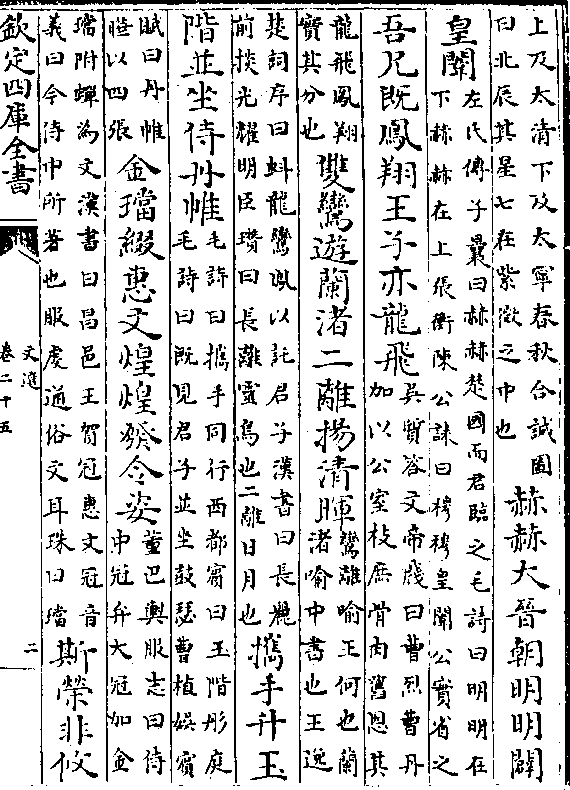 上及太清下及太寧春秋合誠圖
曰北辰其星七在紫微之中也
赫赫大晉朝明明闢
皇闈
左氏傳子囊曰赫赫楚國而君臨之毛詩曰明明在
下赫赫在上張衡陳公誄曰穆穆皇闈公實省之
吾兄既鳳翔王子亦龍飛
吳質答文帝牋曰曹烈曹丹
加以公室枝庶骨肉舊恩其
龍飛鳳翔
實其分也
雙鸞遊蘭渚二離揚清暉
鸞離喻王何也蘭
渚喻中書也王逸
楚詞序曰虯龍鸞鳳以託君子漢書曰長麗
前掞光耀明臣瓚曰長離靈鳥也二離日月也
攜手升玉
階並坐侍丹帷
毛詩曰攜手同行西都賓曰玉階彤庭
毛詩曰既見君子並坐鼓瑟曹植娛賓
賦曰丹帷
曄以四張
金璫綴惠文煌煌發令姿
董巴輿服志曰侍
中冠弁大冠加金
璫附蟬為文漢書曰昌邑王賀冠惠文冠音
義曰今侍中所著也服虔通俗文耳珠曰璫
斯榮非攸
欽定四庫全書
文選
卷二十五
二